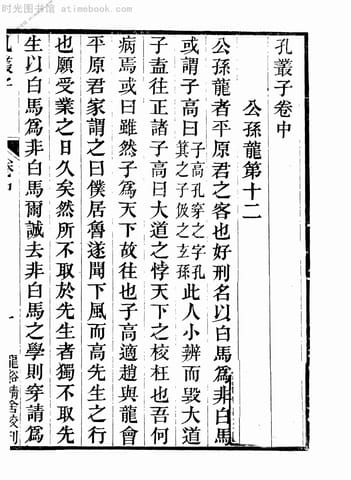 时光图书馆 - atimebook.com
孔叢子卷中
公孫龍第十二
公孫龍者平原君之客也好刑名以白馬爲非白馬
或謂子高曰子高孔穿之字孔箕之子伋之玄孫此人小辨而毀大道
子盍往正諸子高曰大道之悖天下之校枉也吾何
病焉或曰雖然子爲天下故往也子高適趙與龍會
平原君家謂之曰僕居魯遂聞下風而高先生之行
也願受業之日久矣然所不取於先生者獨不取先
生以白馬爲非白馬爾誠去非白馬之學則穿請爲
孔叢子
卷中
一
龍谿精舍校刊